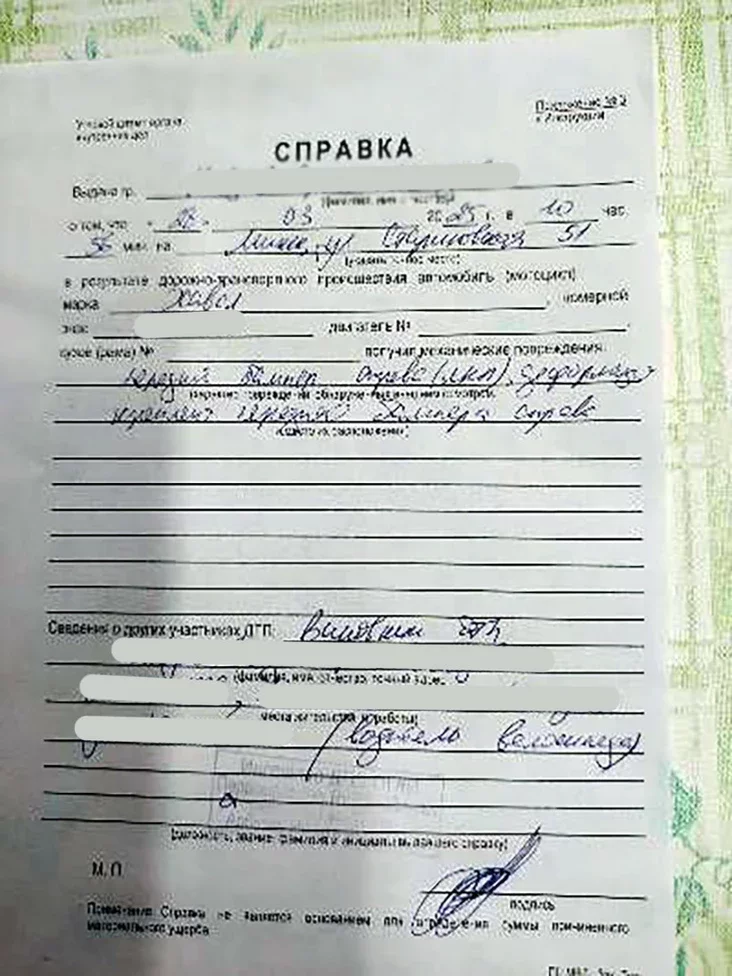 Угловой штамп органа
внутренних дел
Приложение № 2
к Инструкции
СПРАВКА
Выдана гр.
(фамилия, имя, отчество)
о том, что " " 03 2025 г. в 10 час.
56 мин. на Минск, ул. 51
(указать точное место)
в результате дорожно-транспортного происшествия автомобиль (мотоцикл)
марка Хавал, номерной
знак двигатель №
кузов (рама) № получил механические повреждения:
передний бампер справа (ЛКП), деформация
(характер повреждений, обнаруженных внешним осмотром,
креплен. переднего бампера справа
и место их расположения)
Сведения о других участниках ДТП: Виновник ДТП
(фамилия, имя, отчество, точный адрес
места жительства и работы)
(водитель велосипеда)
(должность, звание, фамилия и инициалы выдавшего справку)
М. П.
подпись
Примечание. Справка не является основанием для определения суммы причиненного
материального ущерба.